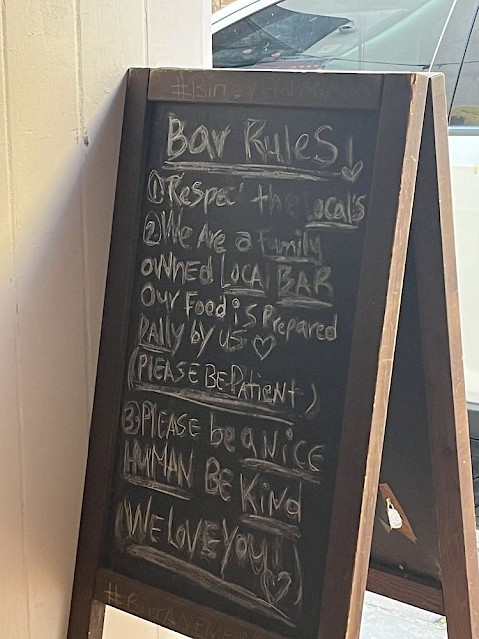 Bar Rules!
① Respec' the Local's
② We Are a Family
owned Local BAR
Our Food is Prepared
Daily by us ♡
(PLEASE BE Patient)
③ PLEASE be a NICE
HUMAN BE Kind
(WE LOVE YOU!! ♡)